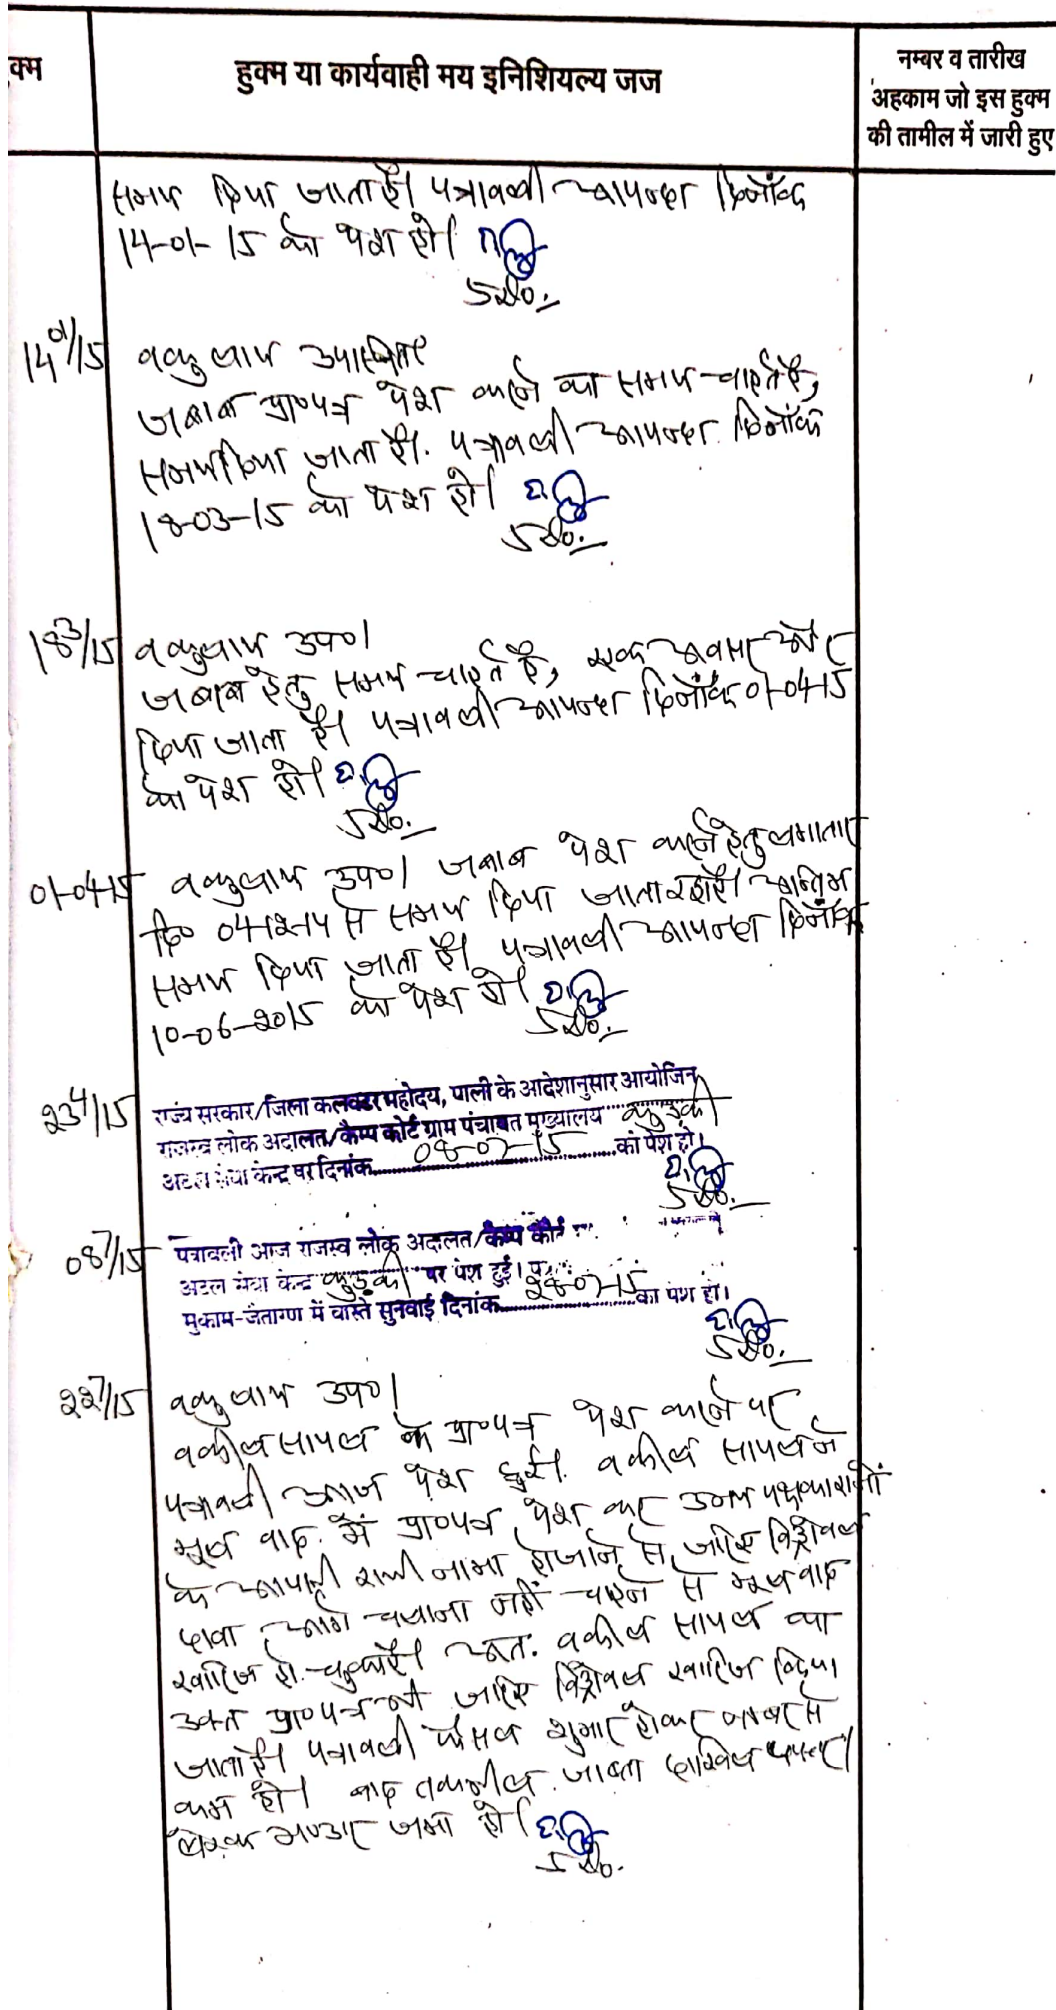 क्म
हुक्म या कार्यवाही मय इनिशियल्य जज
नम्बर व तारीख
अहकाम जो इस हुक्म
की तामील में जारी हुए
समय दिया जाता है। पत्रावली आयन्दा दिनाँक
14-01-15 को पेश हो।
14/01/15 वकुलाय उपस्थित
जबाब प्रा०पत्र पेश करने का समय चाहते है,
समय दिया जाता है. पत्रावली आयन्दा दिनाँक
18-03-15 को पेश हो।
18/3/15 वकुलाय उप०।
जबाब हेतु समय चाहते है, एक अवसर और
दिया जाता है। पत्रावली आयन्दा दिनाँक 01-04-15
को पेश हो।
01-04-15 वकुलाय उप०। जबाब पेश करने हेतु लगातार
दि० 04-12-14 से समय दिया जाता रहा है। अन्तिम
समय दिया जाता है। पत्रावली आयन्दा दिनाँक
10-06-2015 को पेश हो।
23/4/15 राज्य सरकार/जिला कलक्टर महोदय, पाली के आदेशानुसार आयोजित
राजस्व लोक अदालत/कैम्प कोर्ट ग्राम पंचायत मुख्यालय कुड़की
अटल सेवा केन्द्र पर दिनांक 08-07-15 को पेश हो।
08/7/15 पत्रावली आज राजस्व लोक अदालत/कैम्प कोर्ट
अटल सेवा केन्द्र कुड़की पर पेश हुई।
मुकाम-जैतारण में वास्ते सुनवाई दिनांक 28-07-15 को पेश हो।
22/7/15 वकुलाय उप०।
वकील सायल के प्रा०पत्र पेश करने पर
पत्रावली आज पेश हुई. वकील सायल ने
मूल वाद में प्रा०पत्र पेश कर उभय पक्षकारानों
के आपसी राजीनामा होजाने से जरिए विड्रोवल
दावा आगे चलाना नहीं चाहने से मूल वाद
खारिज हो चुका है। अत: वकील सायल का
उक्त प्रा०पत्र जरिए विड्रोवल खारिज किया
जाता है। पत्रावली फैसल शुमार होकर नम्बर से
कम हो। बाद तकमील जाब्ता दाखिल दफ्तर
जमा हो।